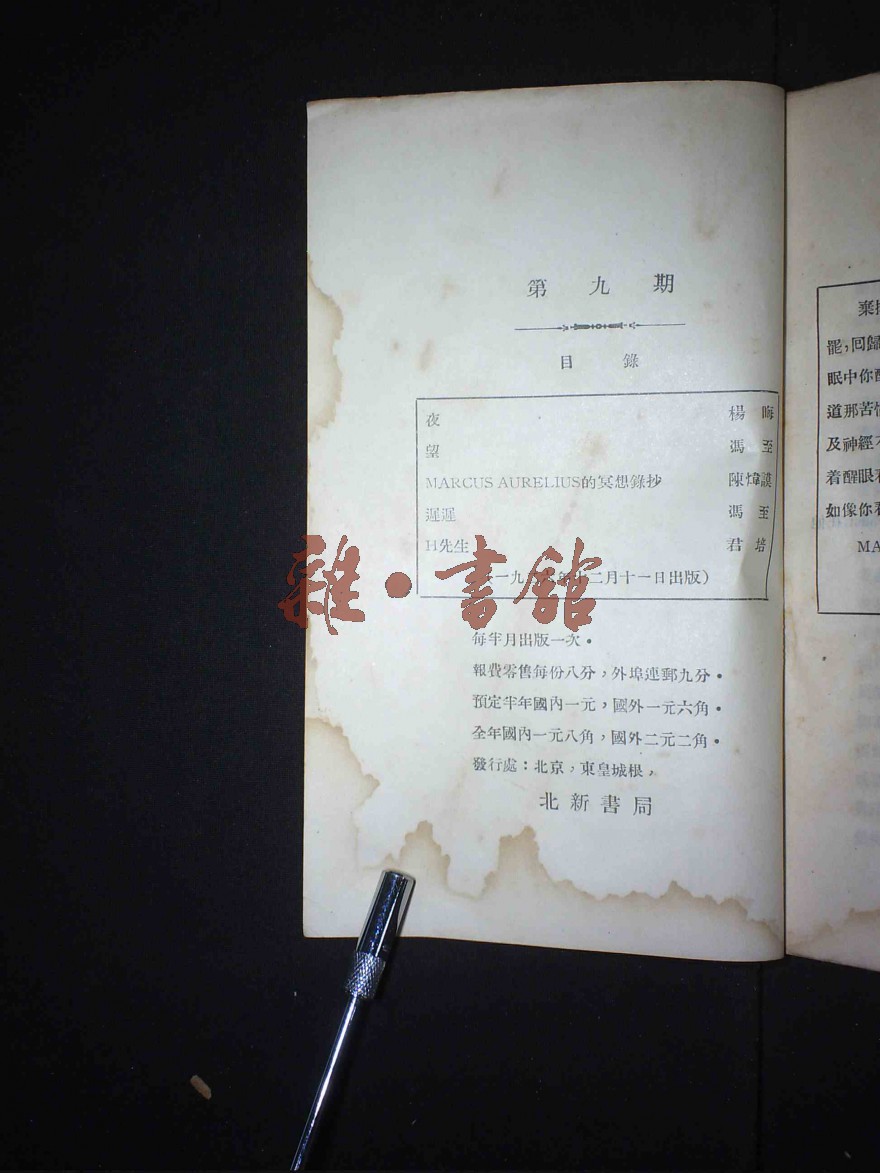 第九期
目錄
夜 楊晦
望 馮至
MARCUS AURELIUS的冥想錄抄 陳煒謨
遲遲 馮至
H先生 君培
二月十一日出版）
每半月出版一次・
報費零售每份八分，外埠連郵九分・
預定半年國內一元，國外一元六角・
全年國內一元八角，國外二元二角・
發行處：北京，東皇城根，
北新書局
雜・書館
罷，回歸
眠中你
道那苦
及神經
着醒眼
如像你
MA